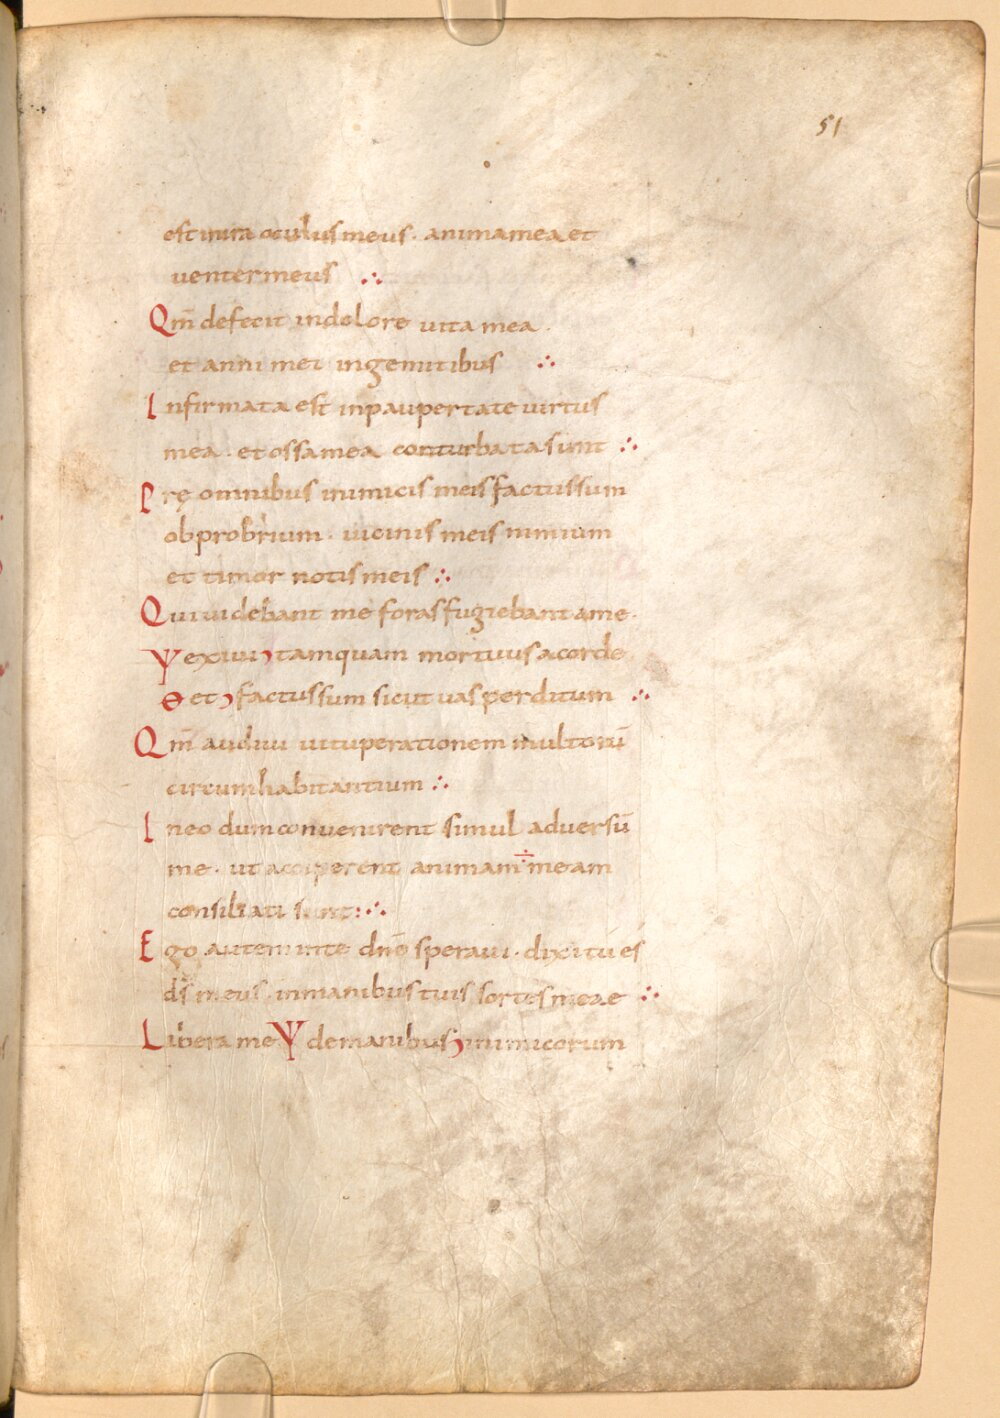 51
est inira oculus meus · anima mea et
venter meus ∴
Qm̄ defecit in dolore vita mea ·
et anni mei in gemitibus ∴
Infirmata est in paupertate virtus
mea · et ossa mea conturbata sunt ∴
Prę omnibus inimicis meis factus sum
obprobrium · vicinis meis nimium
et timor notis meis ∴
Qui videbant me foras fugiebant a me ·
Ψ excivi tamquam mortuus a corde
Ɵ et factus sum sicut vas perditum ∴
Qm̄ audivi vituperationem multorū
circumhabitantium ∴
In eo dum convenirent simul adversū
me · ut acciperent animam ÷ meam
consiliati sunt : ∴
Ego autem in te dn̄e speravi · dixi tu es
ds̄ meus · in manibus tuis sortes meae ∴
Libera me Ψ de manibus inimicorum